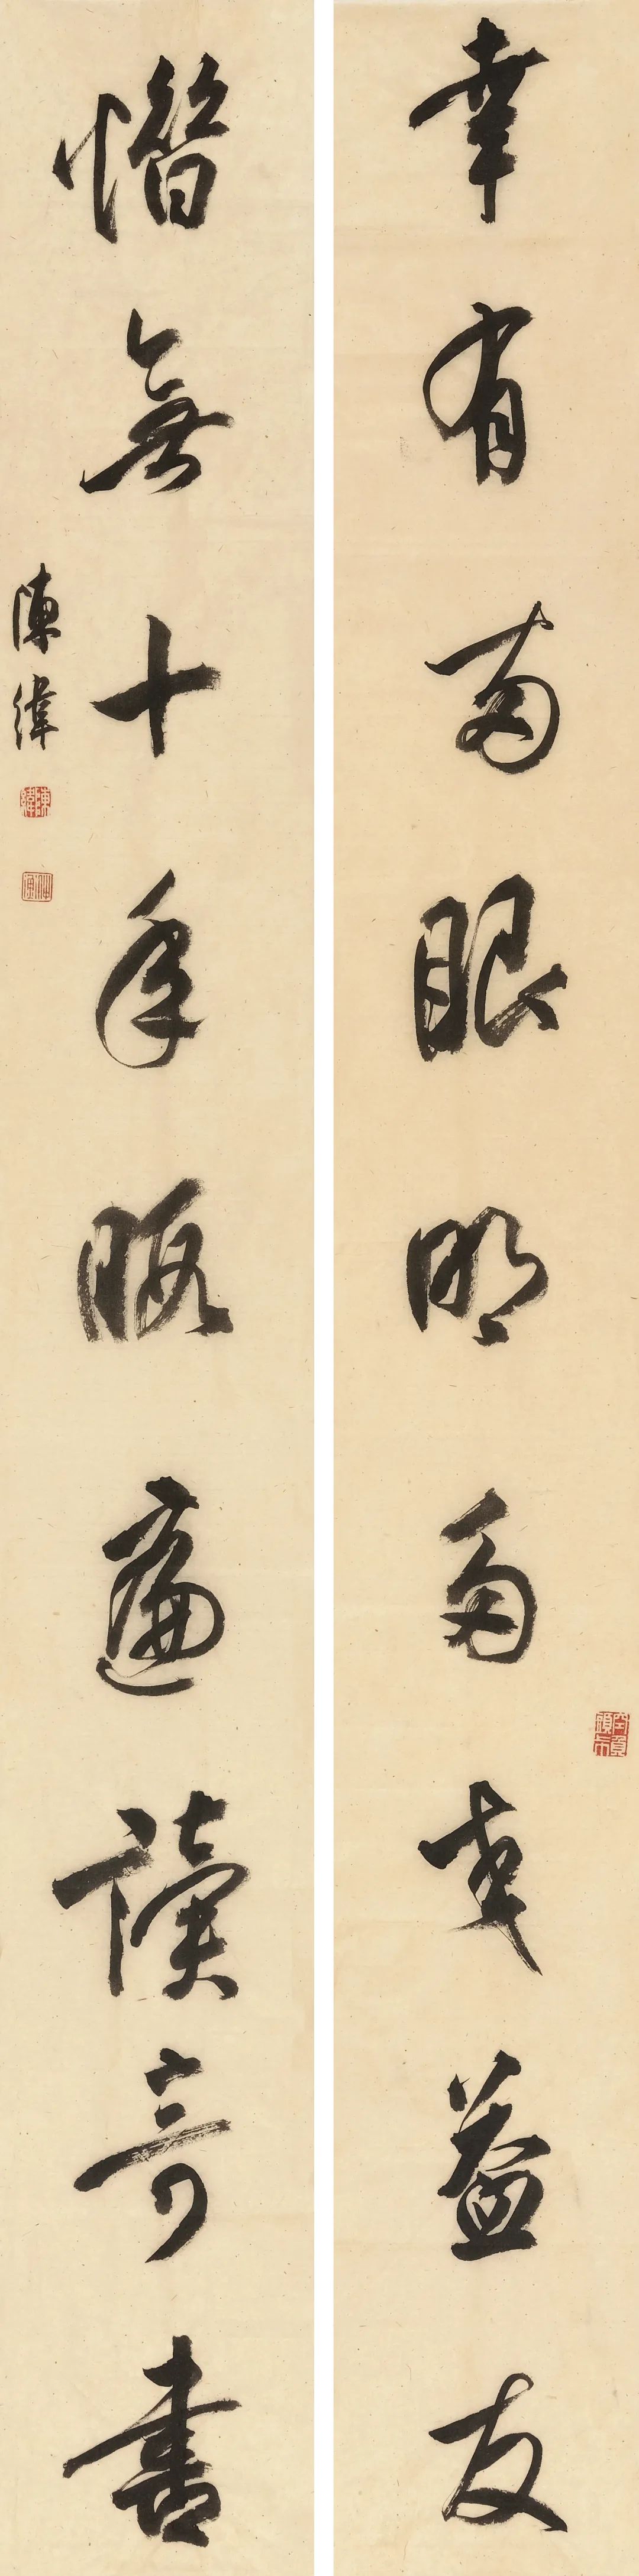 幸有兩眼明多交益友
憯無十年暇遍讀奇書
陳緯
陳緯